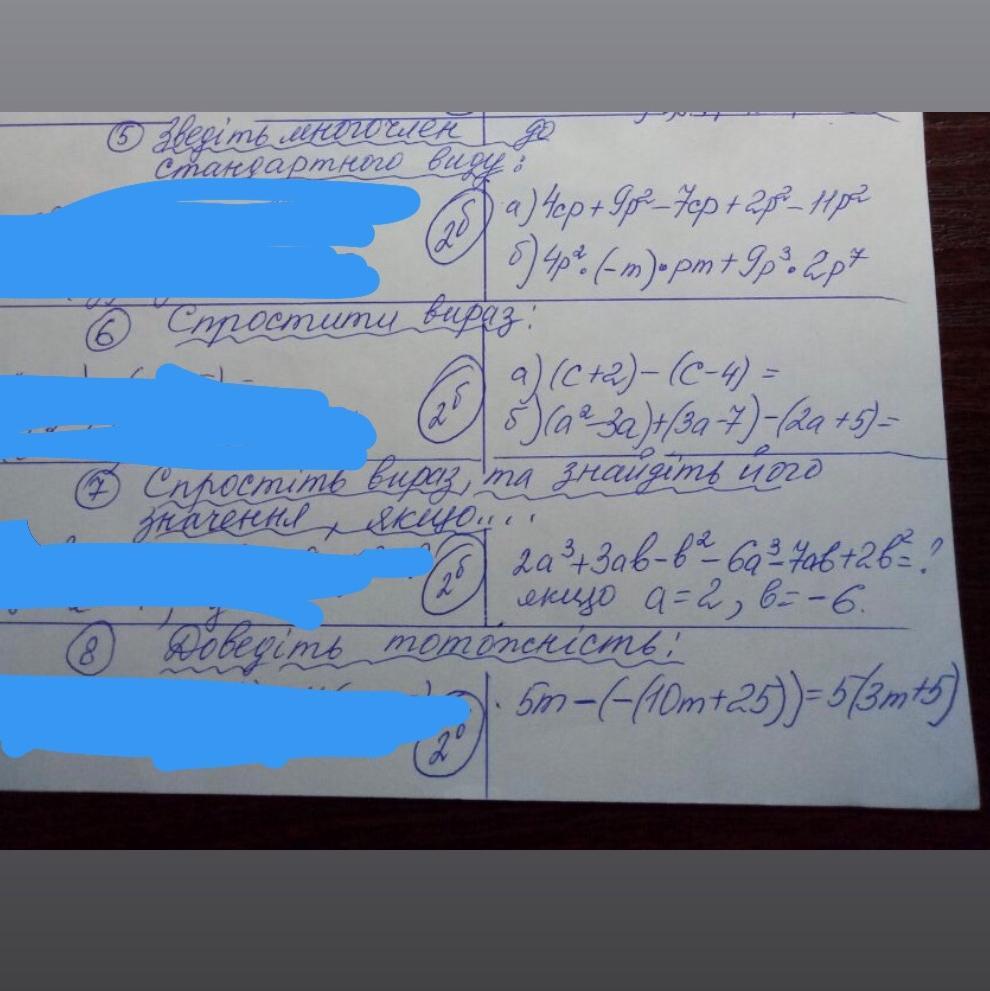 ⑤ Зведіть многочлен до
стандартного виду:
2б
а) 4ср + 9р² - 7ср + 2р² - 11р²
б) 4р² · (-m) · рm + 9р³ · 2р⁷
⑥ Спростити вираз:
2б
а) (с+2) - (с-4) =
б) (а² - 3а) + (3а - 7) - (2а + 5) =
⑦ Спростіть вираз, та знайдіть його
значення, якщо....
2б
2а³ + 3ав - в² - 6а³ - 7ав + 2в² = ?
якщо а = 2, в = -6.
⑧ Доведіть тотожність:
2б
5m - (-(10m + 25)) = 5(3m + 5)